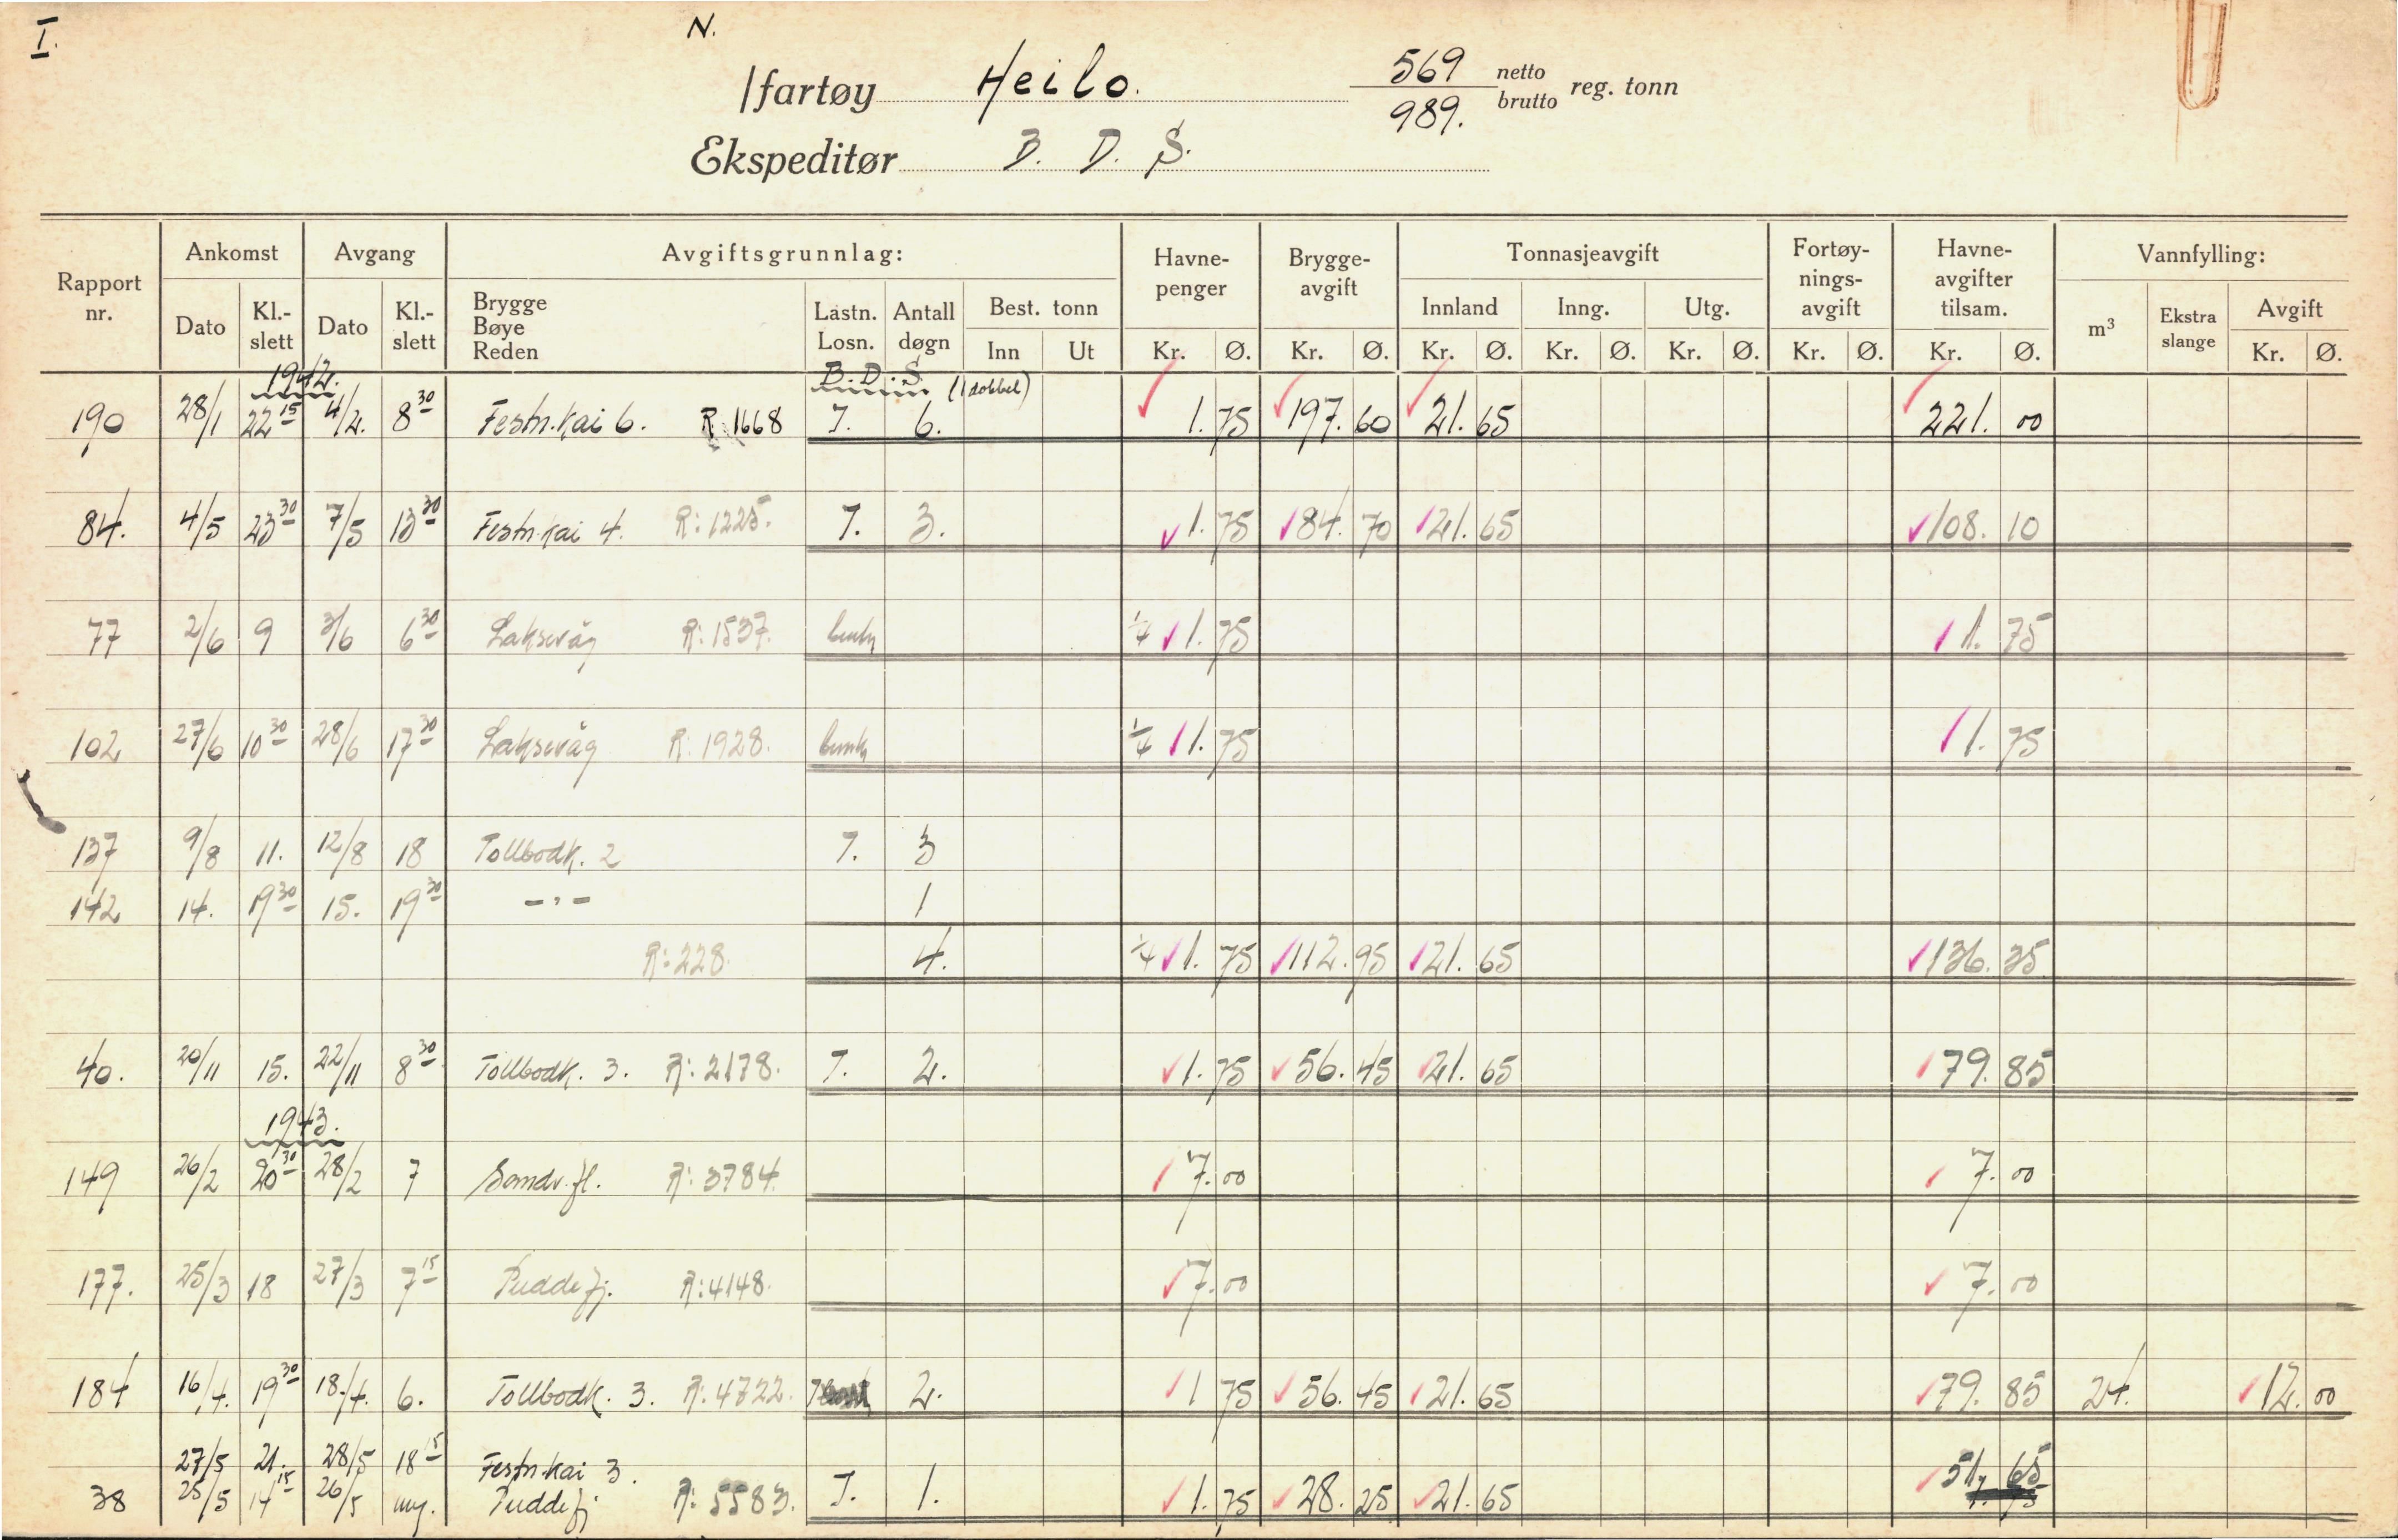 I.
N.
/fartøy Heilo. 569 netto
989. brutto reg. tonn
Ekspeditør B. D. S.
Rapport nr. Ankomst Avgang Avgiftsgrunnlag: Havne-penger Brygge-avgift Tonnasjeavgift Fortøy-nings-avgift Havne-avgifter tilsam. Vannfylling:
Dato Kl.-slett Dato Kl.-slett Brygge Bøye Reden Lastn. Losn. Antall døgn Best. tonn Innland Inng. Utg. m³ Ekstra slange Avgift
Inn Ut Kr. Ø. Kr. Ø. Kr. Ø. Kr. Ø. Kr. Ø. Kr. Ø. Kr. Ø. Kr. Ø.
1942. B. D. S. (1 dobbel)
190 28/1 22 15 4/2. 8 30 Festn.kai 6. R 1668 I. 6. 1.75 197.60 21.65 221.00
84. 4/5 23 30 7/5 13 30 Festn.kai 4. R: 1225. I. 3. 1.75 84.70 21.65 108.10
77 2/6 9 3/6 6 30 Laksevåg R: 1537. bunk 1/4 1.75 1.75
102 27/6 10 30 28/6 17 30 Laksevåg R: 1928. bunk 1/4 1.75 1.75
137 9/8 11. 12/8 18 Tollbodk. 2 I. 3
142 14. 19 30 15. 19 30 -"- 1
R: 228. 4. 1/4 1.75 112.95 21.65 136.35
40. 20/11 15. 22/11 8 30 Tollbodk. 3. R: 2178. I. 2. 1.75 56.45 21.65 79.85
1943.
149 26/2 20 30 28/2 7 Sandv.fl. R: 3784. 7.00 7.00
177. 25/3 18 27/3 7 15 Puddefj. R: 4148. 7.00 7.00
184 16/4. 19 30 18./4. 6. Tollbodk. 3. R: 4722. I 2. 1 75 56.45 21.65 79.85 24. 12.00
27/5 21. 28/5 18 15 Festn.kai 3. 51. 65
38 25/5 14 15 26/5 Puddefj R: 5583. I. 1. 1.75 28.25 21.65